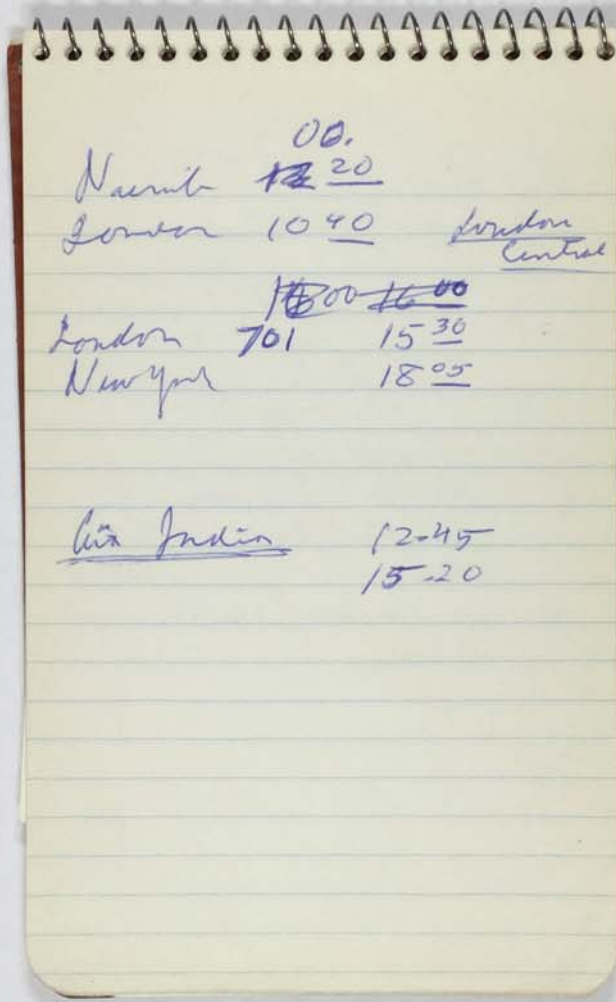 00.
Nairobi 20
London 10 40 London
Central
16 00
London 701 15 30
New York 18 05
Air India 12-45
15-20